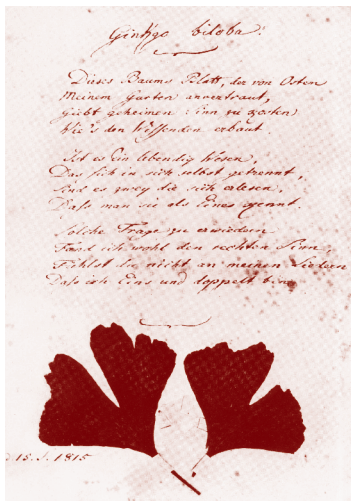 Ginkgo biloba.
Dieses Baums Blatt, der von Osten
Meinem Garten anvertraut,
Giebt geheimen Sinn zu kosten
Wie's den Wissenden erbaut.
Ist es Ein lebendig Wesen,
Das sich in sich selbst getrennt,
Sind es zwey die sich erlesen,
Dass man sie als Eines kennt.
Solche Frage zu erwiedern
Fand ich wohl den rechten Sinn
Fühlst du nicht an meinen Liedern
Dass ich Eins und doppelt bin
15. S. 1815